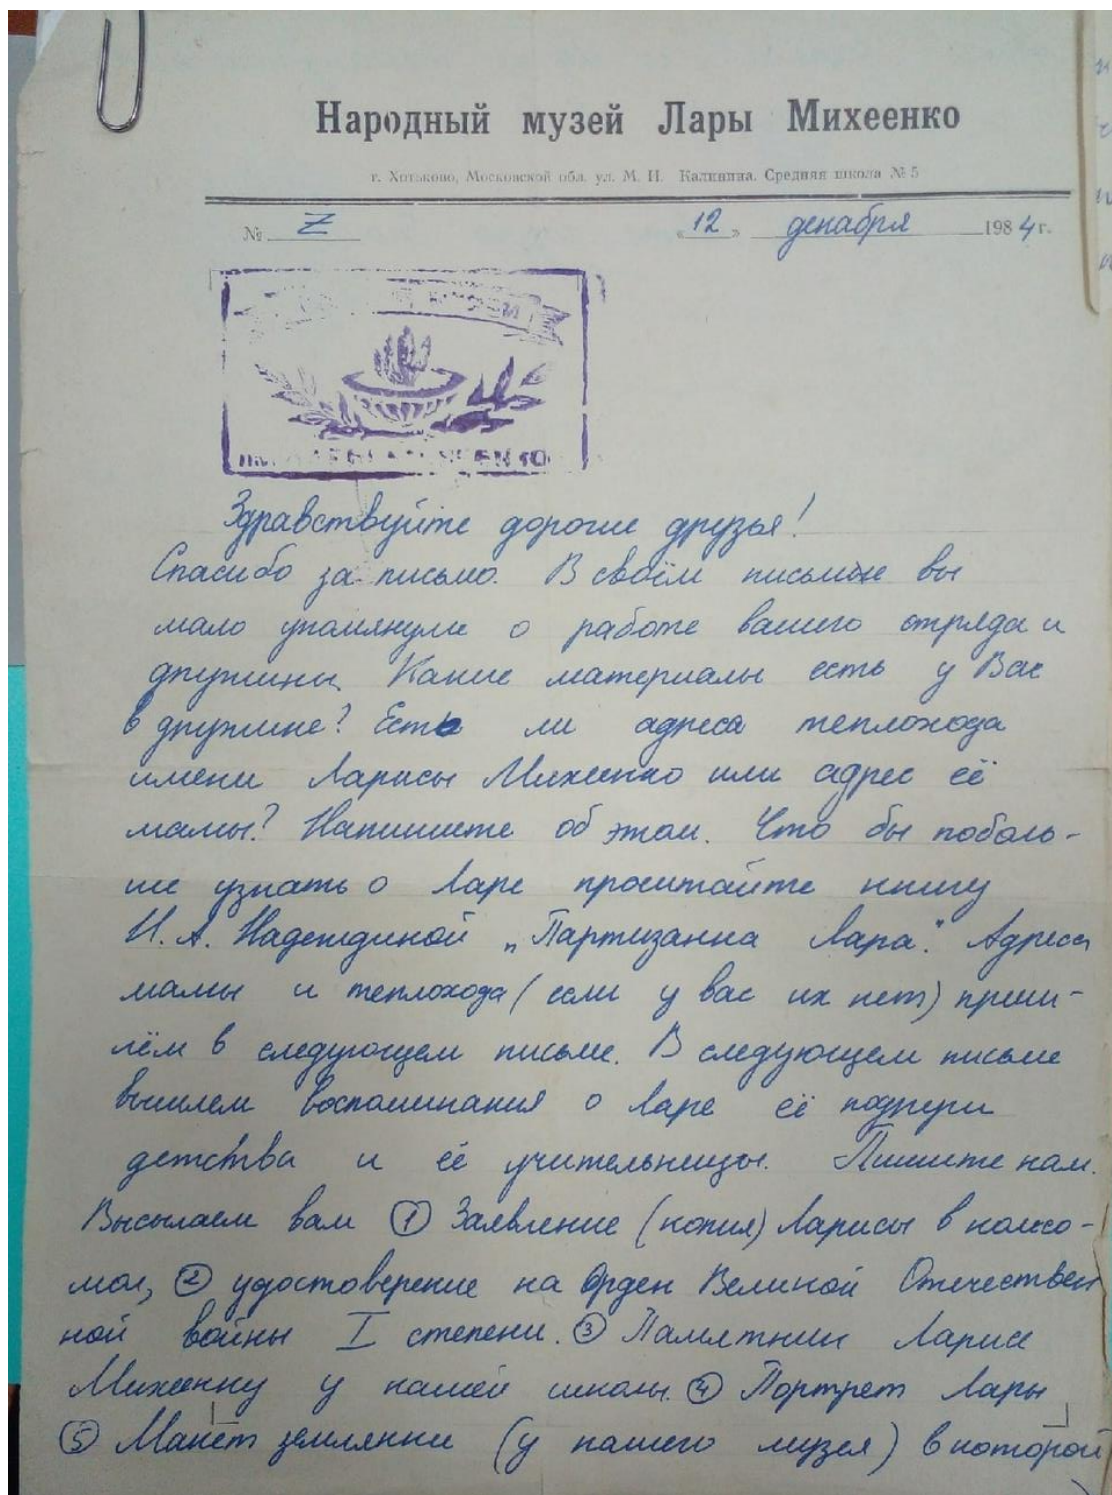 Народный музей Лары Михеенко
г. Хотьково, Московской обл. ул. М. И. Калинина. Средняя школа № 5
№ Z „12" декабря 1984 г.
Здравствуйте дорогие друзья!
Спасибо за письмо. В своём письме вы
мало упомянули о работе вашего отряда и
дружины. Какие материалы есть у Вас
в дружине? Есть ли адреса теплохода
имени Ларисы Михеенко или адрес её
мамы? Напишите об этом. Что бы поболь-
ше узнать о Ларе прочитайте книгу
Н. А. Надеждиной „Партизанка Лара". Адреса
мамы и теплохода (если у вас их нет) приш-
лём в следующем письме. В следующем письме
вышлем воспоминания о Ларе её подруги
детства и её учительницы. Пишите нам.
Высылаем вам ① Заявление (копия) Ларисы в комсо-
мол, ② удостоверение на Орден Великой Отечествен
ной войны I степени. ③ Памятник Ларисе
Михеенку у нашей школы. ④ Портрет Лары
⑤ Макет землянки (у нашего музея) в которой